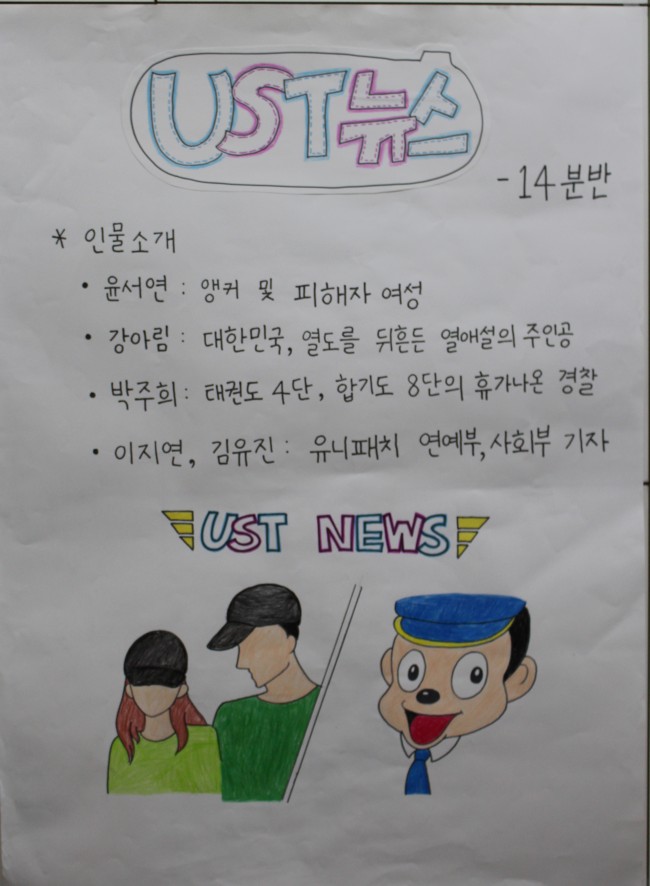 UST뉴스
- 14분반
* 인물소개
• 윤서연 : 앵커 및 피해자 여성
• 강아림 : 대한민국, 열도를 뒤흔든 열애설의 주인공
• 박주희 : 태권도 4단, 합기도 8단의 휴가나온 경찰
• 이지연, 김유진 : 유니패치 연예부, 사회부 기자
UST NEWS